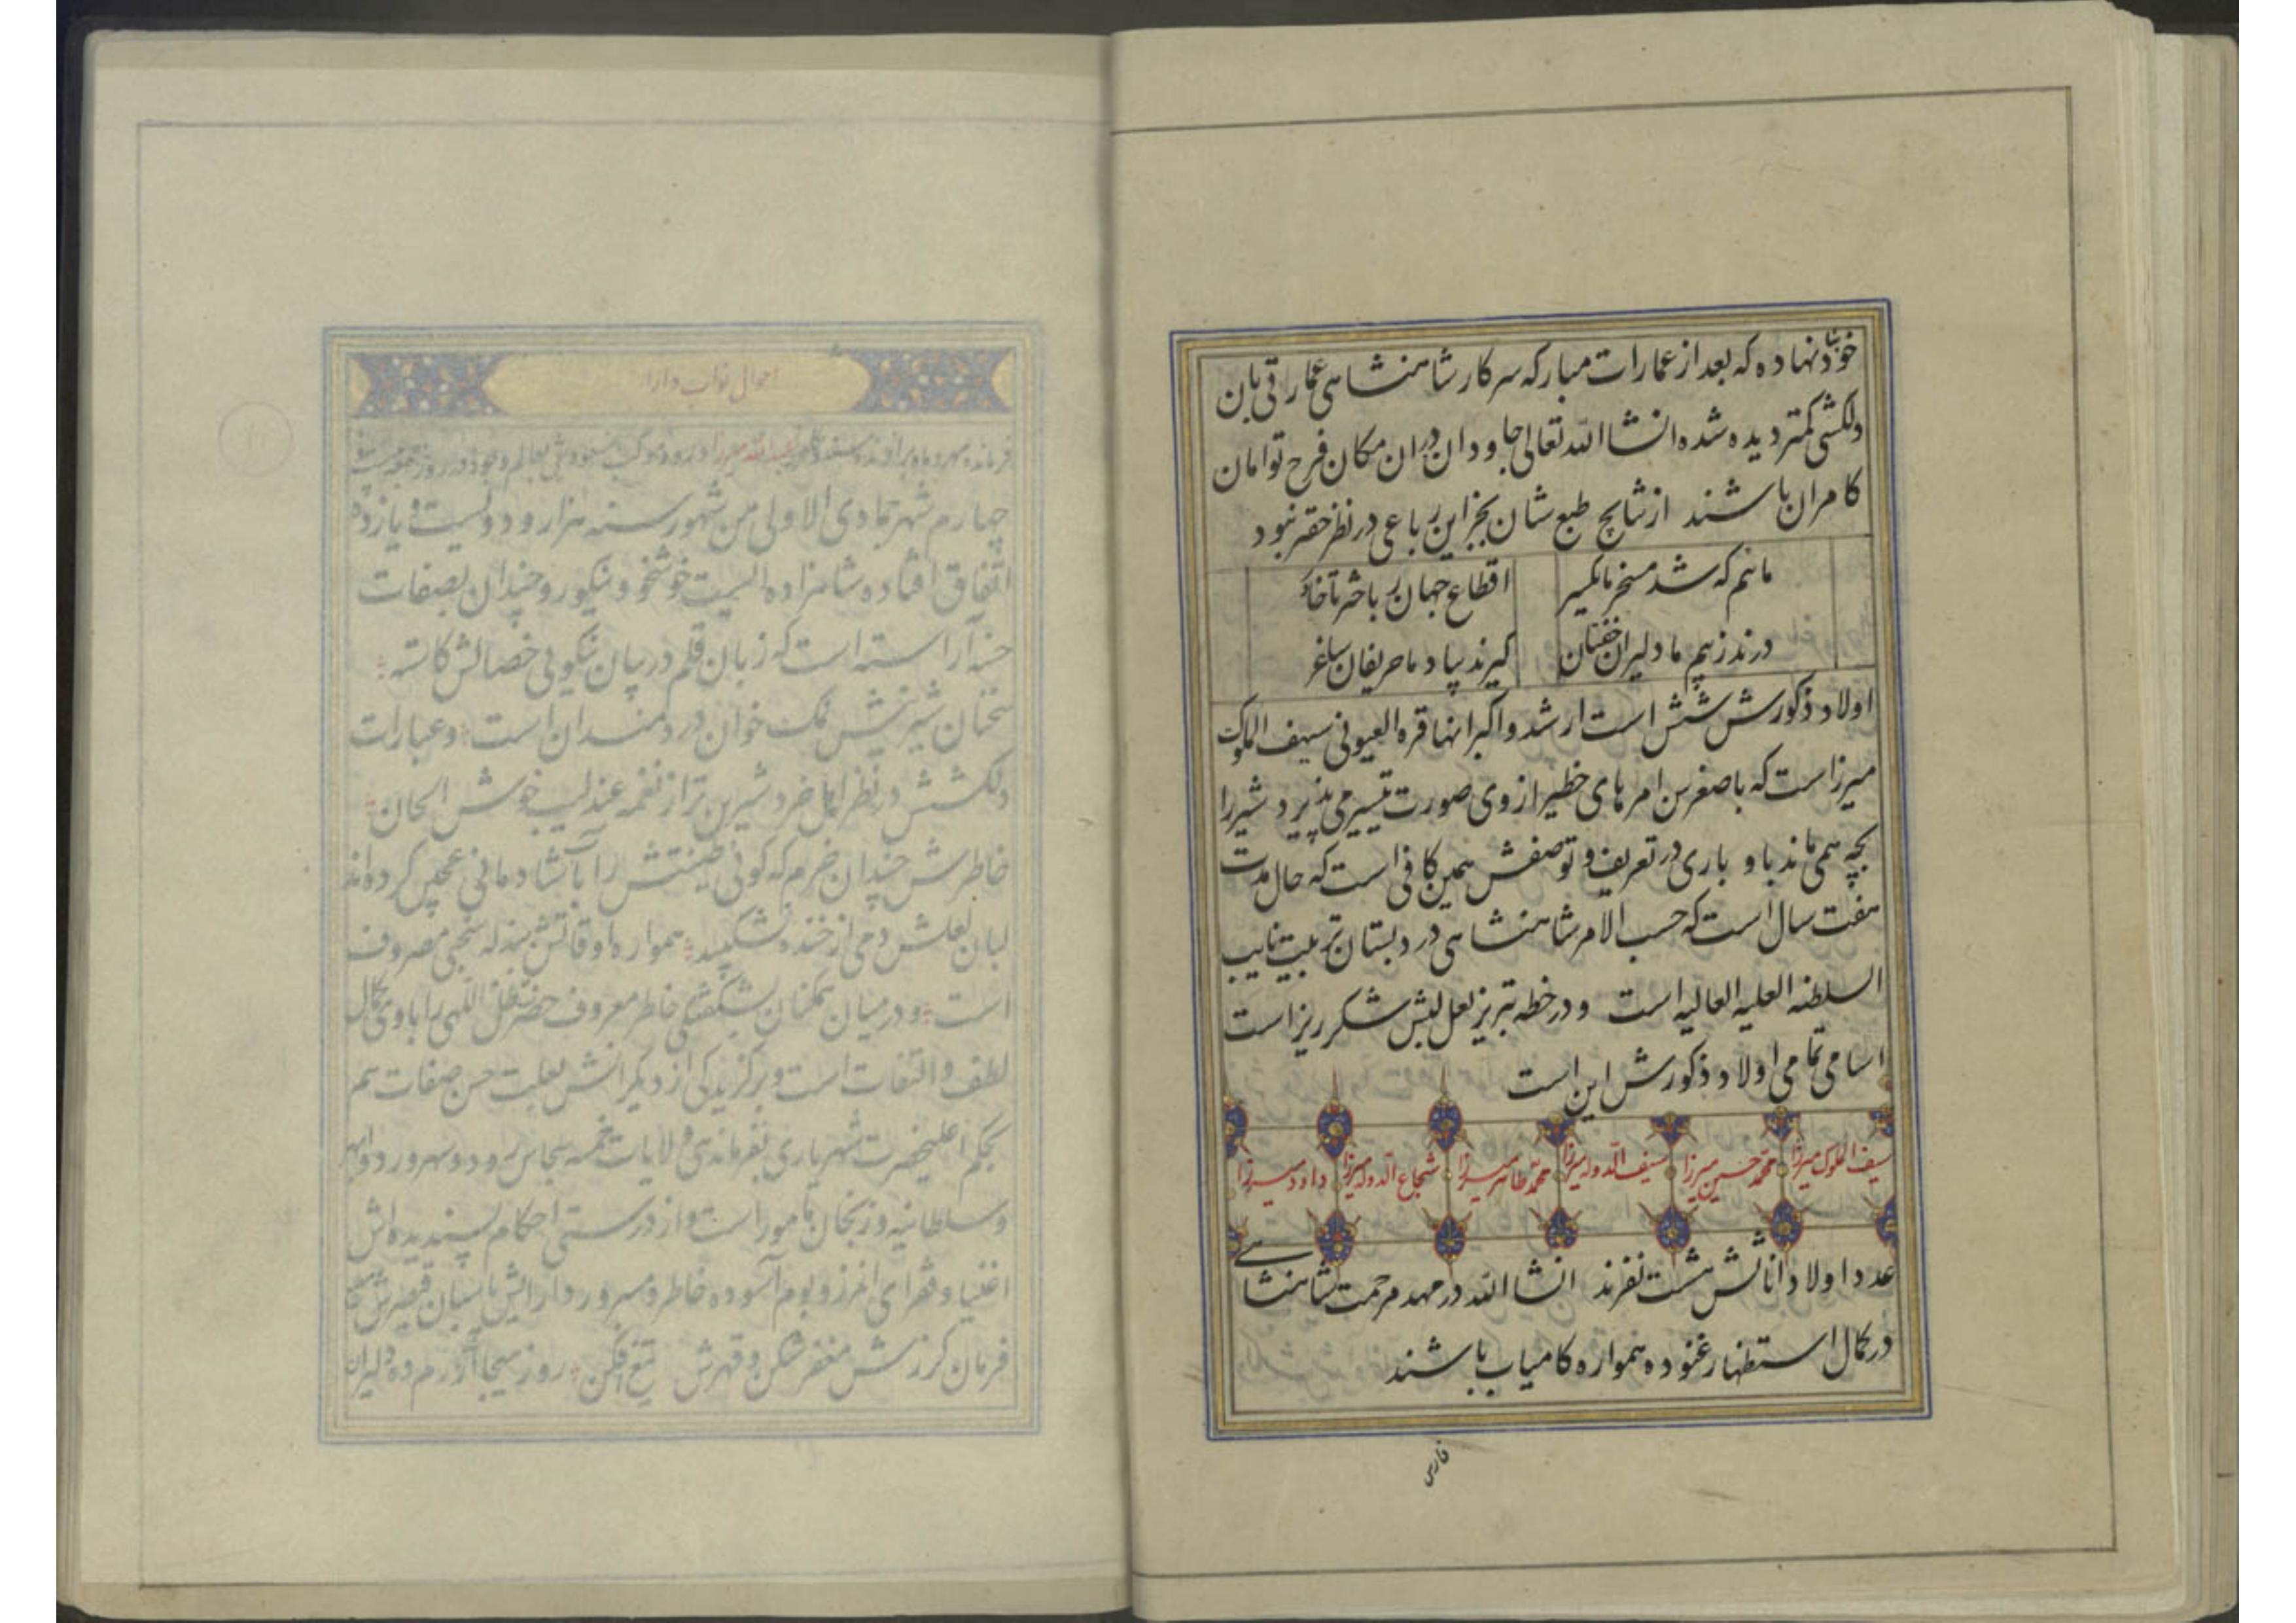 خود بنا نهاده که بعد از عمارات مبارکه سرکار شاهنشاهی عمارتی بان
دلکشی کمتر دیده شده انشاالله تعالی جاودان دران مکان فرح توامان
کامران باشند از نتایج طبع شان بجز این رباعی در نظر حقیر نبود
مائیم که شد مسخر ما یکسر اقطاع جهان ز باختر تا خاور
درند ز بیم ما دلیران خفتان گیرند بیاد ما حریفان ساغر
اولاد ذکورش شش است ارشد و اکبر انها قره العیونی سیف الملوک
میرزاست که با صغر سن امرهای خطیر از وی صورت تیسیر می پذیرد شیر را
بچه همی ماند باو باری در تعریف و توصیفش همین کافی است که حال مدت
هفت سال است که حسب الامر شاهنشاهی در دبستان تربیت نایب
السلطنه العلیه العالیه است و در خطه تبریز لعل لبش شکرریز است
اسامی تمامی اولاد ذکورش این است
سیف الملوک میرزا محمد حسین میرزا سیف الدوله میرزا محمد طاهر میرزا شجاع الدوله میرزا داود میرزا
عدد اولاد اناثش هشت نفرند انشاالله در مهد مرحمت شاهنشاهی
در کمال استظهار غنوده همواره کامیاب باشند
احوال نواب دارا
عبدالله میرزا
چهارم شهر جمادی الاولی من شهور سنه هزار و دویست و یازده
اتفاق افتاده شاهزاده ایست خوشخو و نیکورو چندان بصفات
حسنه آراسته است که زبان قلم در بیان نیکویی خصالش کاسته
سخنان شیرینش نمک خوان دردمندان است و عبارات
دلکشش در نظر اهل خرد شیرین تر از نغمه عندلیب خوش الحان
خاطرش چندان خرم که گوئی طینتش را با آب شادمانی عجین کرده اند
لبان لعلش دمی از خنده نشکیبد همواره اوقاتش ببذله سنجی مصروف
است و در میان همکنان بشکفتگی خاطر معروف حضرت ظل اللهی را با وی کمال
لطف و التفات است و برگزیدگی از دیگرانش بعلت حسن صفات هم
بحکم اعلیحضرت شهریاری بفرماندهی ولایات خمسه سجاس رود و سهرورد و ابهر
و سلطانیه و زنجان مامور است و از درستی احکام پسندیده اش
اغنیا و فقرای انمرز و بوم آسوده خاطر و مسرور
فرمان گرزش مغفر شکن و قهرش تیغ افکن روز هیجا
فارس